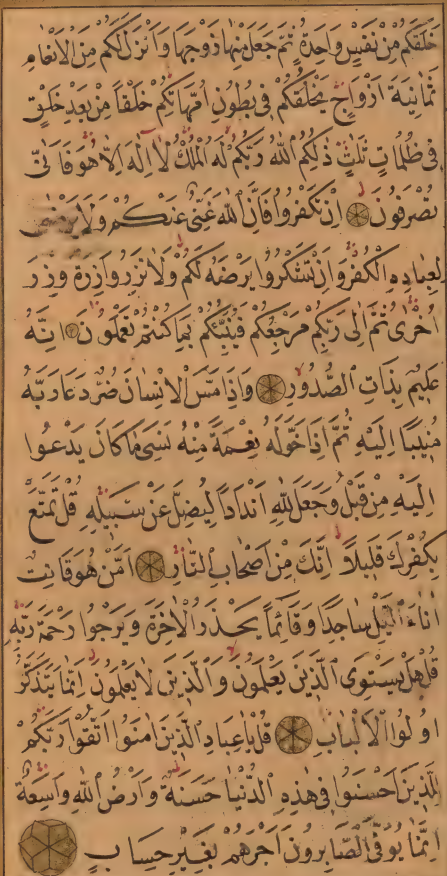 خَلَقَكُمْ مِنْ نَفْسٍ وَاحِدَةٍ ثُمَّ جَعَلَ مِنْهَا زَوْجَهَا وَاَنْزَلَ لَكُمْ مِنَ الْاَنْعَامِ
ثَمَانِيَةَ اَزْوَاجٍ يَخْلُقُكُمْ فِى بُطُونِ اُمَّهَاتِكُمْ خَلْقًا مِنْ بَعْدِ خَلْقٍ
فِى ظُلُمَاتٍ ثَلٰثٍ ذٰلِكُمُ اللّٰهُ رَبُّكُمْ لَهُ الْمُلْكُ لَا اِلٰهَ اِلَّا هُوَ فَاَنّٰى
تُصْرَفُونَ اِنْ تَكْفُرُوا فَاِنَّ اللّٰهَ غَنِىٌّ عَنْكُمْ وَلَا يَرْضٰى
لِعِبَادِهِ الْكُفْرَ وَاِنْ تَشْكُرُوا يَرْضَهُ لَكُمْ وَلَا تَزِرُ وَازِرَةٌ وِزْرَ
اُخْرٰى ثُمَّ اِلٰى رَبِّكُمْ مَرْجِعُكُمْ فَيُنَبِّئُكُمْ بِمَا كُنْتُمْ تَعْمَلُونَ اِنَّهُ
عَلِيمٌ بِذَاتِ الصُّدُورِ وَاِذَا مَسَّ الْاِنْسَانَ ضُرٌّ دَعَا رَبَّهُ
مُنِيبًا اِلَيْهِ ثُمَّ اِذَا خَوَّلَهُ نِعْمَةً مِنْهُ نَسِىَ مَا كَانَ يَدْعُوا
اِلَيْهِ مِنْ قَبْلُ وَجَعَلَ لِلّٰهِ اَنْدَادًا لِيُضِلَّ عَنْ سَبِيلِهِ قُلْ تَمَتَّعْ
بِكُفْرِكَ قَلِيلًا اِنَّكَ مِنْ اَصْحَابِ النَّارِ اَمَّنْ هُوَ قَانِتٌ
اٰنَاءَ الَّيْلِ سَاجِدًا وَقَائِمًا يَحْذَرُ الْاٰخِرَةَ وَيَرْجُوا رَحْمَةَ رَبِّهِ
قُلْ هَلْ يَسْتَوِى الَّذِينَ يَعْلَمُونَ وَالَّذِينَ لَا يَعْلَمُونَ اِنَّمَا يَتَذَكَّرُ
اُولُوا الْاَلْبَابِ قُلْ يَا عِبَادِ الَّذِينَ اٰمَنُوا اتَّقُوا رَبَّكُمْ
لِلَّذِينَ اَحْسَنُوا فِى هٰذِهِ الدُّنْيَا حَسَنَةٌ وَاَرْضُ اللّٰهِ وَاسِعَةٌ
اِنَّمَا يُوَفَّى الصَّابِرُونَ اَجْرَهُمْ بِغَيْرِ حِسَابٍ